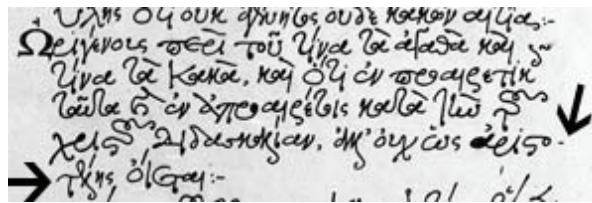 ὕλης ὅτι οὐκ ἀγένητος οὐδὲ κακῶν αἰτία:-
Ὠριγένους περὶ τοῦ τίνα τὰ ἀγαθὰ καὶ
τίνα τὰ κακὰ, καὶ ὅτι ἐν προαιρετικ
ταῦτα καὶ ἐν ἀπροαιρέτοις κατὰ τὴν τοῦ
χριστοῦ διδασκαλίαν, ἀλλ' οὐχ ὡς ἀριστο
τέλης οἴεται:-